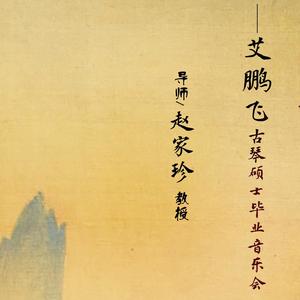 ——艾鹏飞古琴硕士毕业音乐会
导师/赵家珍 教授